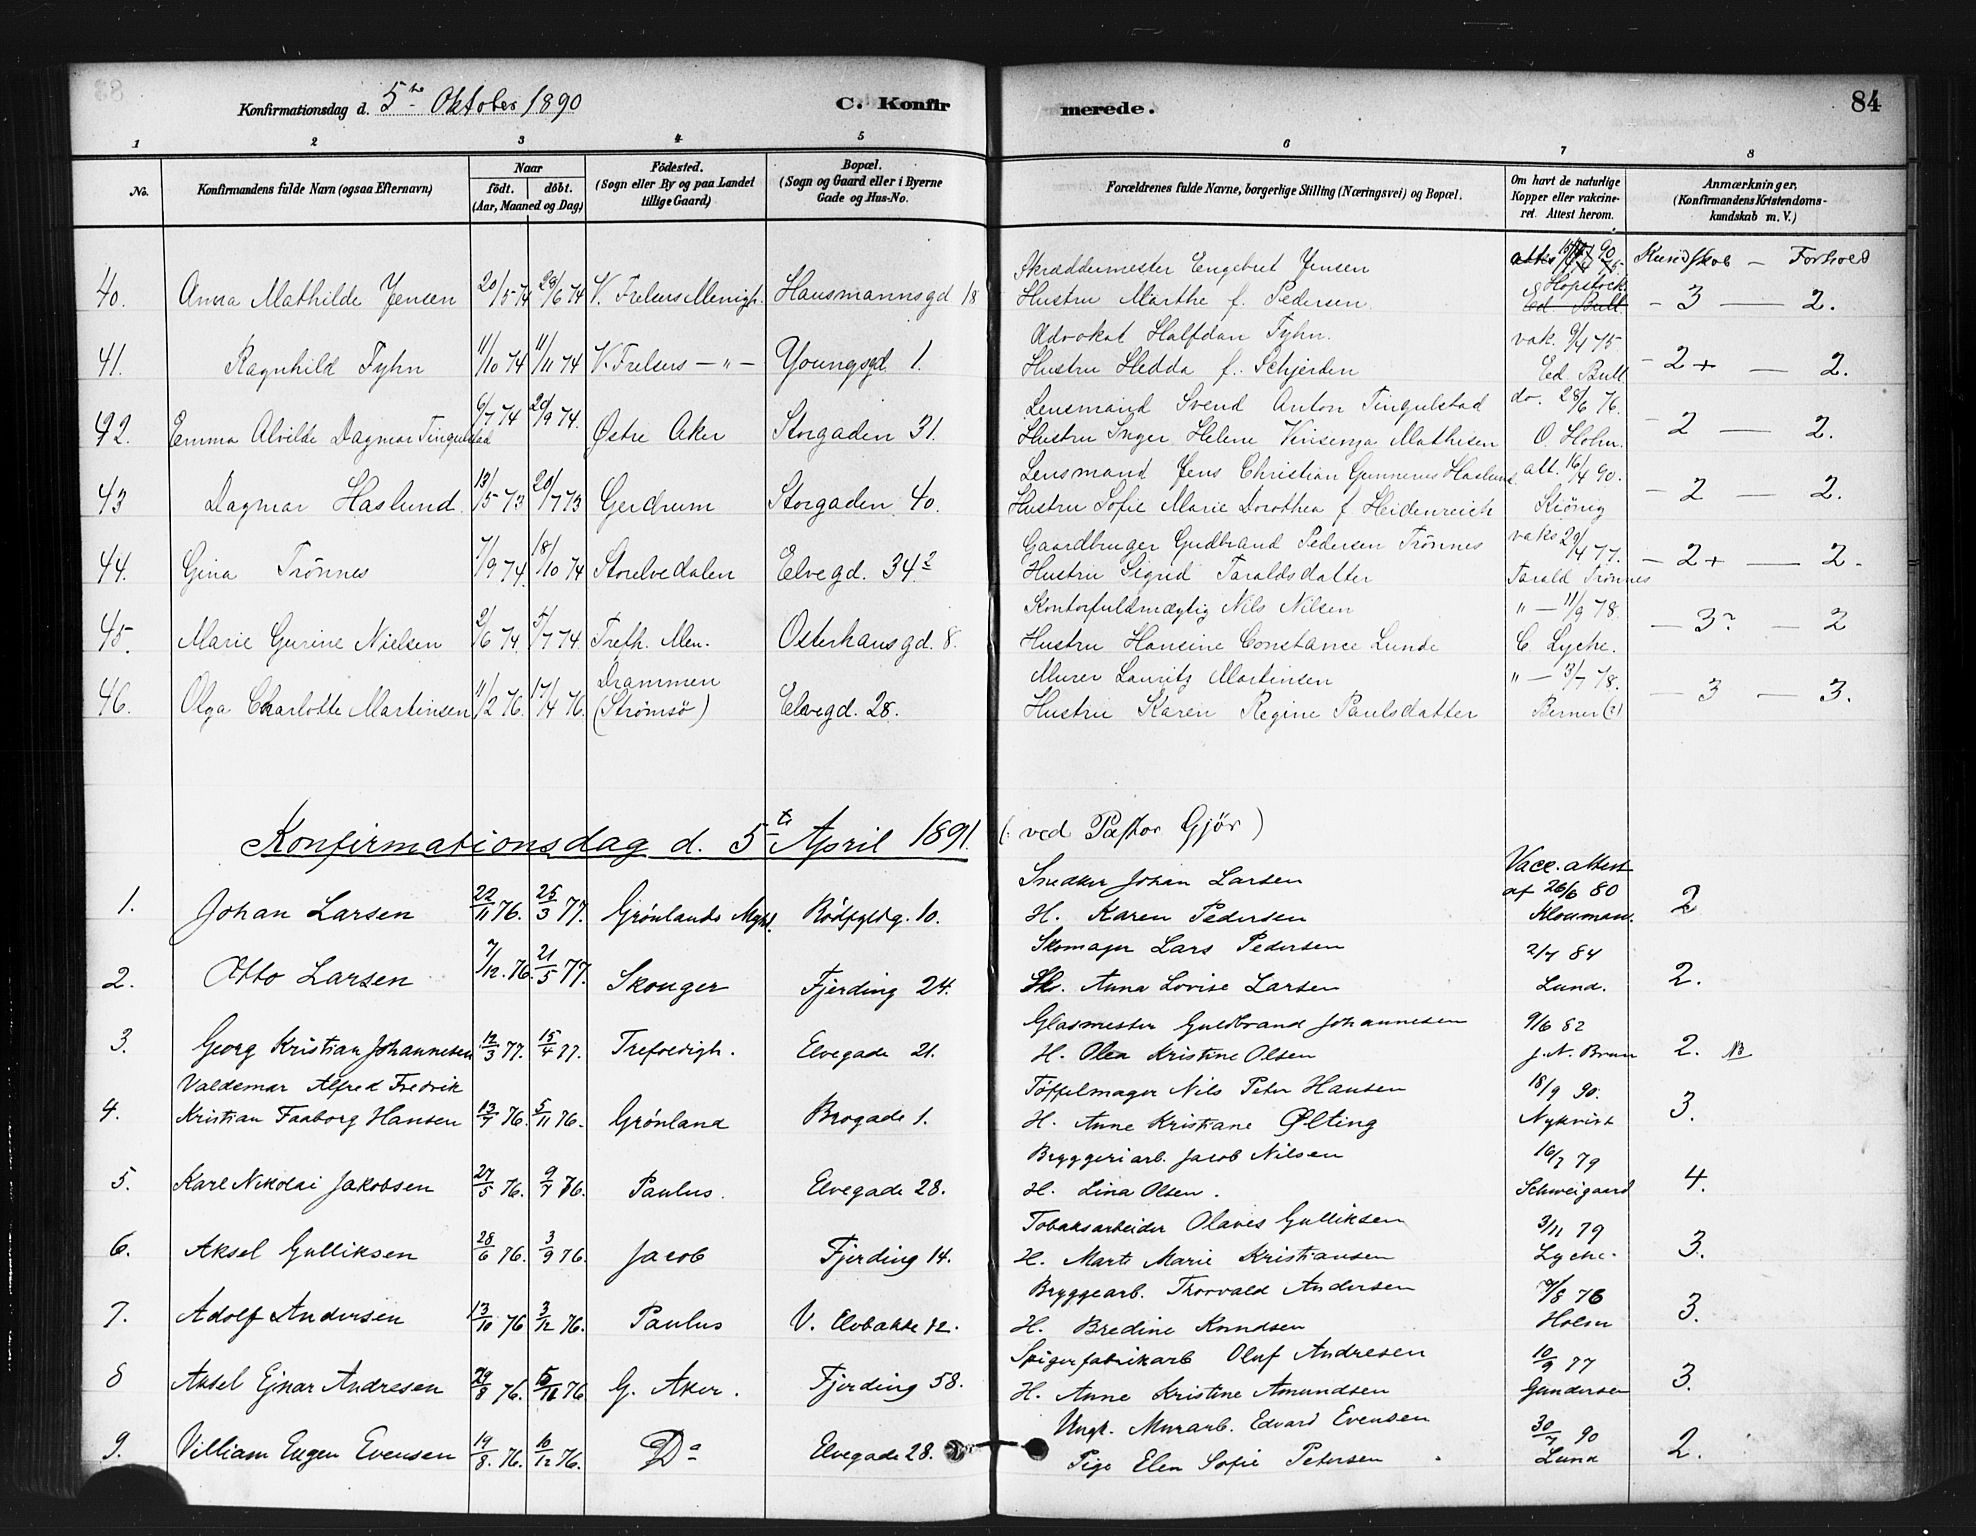 Konfirmationsdag d. 5te Oktober 1890 C. Konfirmerede. 84
1 2 3 4 5 6 7 8
No. Konfirmandens fulde Navn (ogsaa Efternavn) Naar födt. döbt. (Aar, Maaned og Dag) Födested. (Sogn eller By og paa Landet tillige Gaard) Bopæl. (Sogn og Gaard eller i Byerne Gade og Hus-No. Forældrenes fulde Navne, borgerlige Stilling (Næringsvei) og Bopæl. Om havt de naturlige Kopper eller vakcineret. Attest herom. Anmærkninger, (Konfirmandens Kristendomskundskab m. V.)
Skræddermester Engebret Jensen Kundskab — Forhold
40. Anna Mathilde Jensen 20/5 74 28/6 74 V. Frelsers Menigh. Hausmannsgd 18 Hustru Marthe f. Pedersen Hopstock Ed. Bull - 3 — 2.
Advokat Halfdan Tyhn. vak. 9/4 75
41. Ragnhild Tyhn 11/10 74 11/11 74 V. Frelsers — " — Youngsgd 1. Hustru Hedda f. Schjerden Ed. Bull - 2+ — 2.
Lensmand Svend Anton Tingulstad do. 28/6 76.
42. Emma Alvilde Dagmar Tingulstad 6/7 74 20/9 74. Østre Aker Storgaden 31. Hustru Inger Helene Vinsenza Mathisen O. Holm. - 2 — 2.
Lensmand Jens Christian Gunnerus Haslund att. 16/4 90.
43 Dagmar Haslund 13/5 73 20/7 73 Gerdrum Storgaden 40. Hustru Sofie Marie Dorothea f. Heidenreich Kiönig - 2 — 2.
Gaardbruger Gudbrand Pedersen Trönnes vaks 29/4 77.
44. Gina Trönnes 7/9 74. 18/10 74 Storelvedalen Elvegd. 34² Hustru Sigrid Taraldsdatter Tarald Trönnes - 2+ — 2.
Kontorfuldmægtig Nils Nilsen " — 11/9 78.
45. Marie Gurine Nielsen 2/6 74. 5/7 74. Trefh. Men. Osterhausgd. 8. Hustru Hansine Constance Lunde C. Lyche. — 3? — 2
Drammen Murer Lauritz Martinsen " — 3/7 78.
46. Olga Charlotte Martinsen 11/2 76. 17/4 76. (Strömsö) Elvegd. 28. Hustru Karen Regine Paulsdatter Berner(?) — 3 — 3.
Konfirmationsdag d. 5te April 1891. (: ved Pastor Gjör)
Snedker Johan Larsen Vacc. attest af 26/6 80
1. Johan Larsen 22/11 76. 25/3 77. Grönlands Mgh. Rödfyldg. 10. H. Karen Pedersen Klouman. 2
Skomager Lars Pedersen 2/7 84
2. Otto Larsen 7/12. 76. 21/5 77. Skouger Fjerding 24. H. Anna Lovise Larsen Lund. 2.
Glasmester Guldbrand Johannesen 9/6 82
3. Georg Kristian Johannesen 12/3 77. 15/4 77. Trefoldigh. Elvegade 21. H. Olea Kristine Olsen J. N. Brun 2. NB
Valdemar Alfred Fredrik Töffelmager Nils Peter Hansen 18/9 90.
4. Kristian Faaborg Hansen 13/7 76. 5/11 76. Grönland Brogade 1. H. Anne Kristiane Ølting Nykvist 3.
Bryggeriarb. Jacob Nilsen 16/7 79
5. Karl Nikolai Jakobsen 27/5 76. 9/7 76. Paulus. Elvegade 28. H. Lina Olsen. Schweigaard 4.
Tobaksarbeider Olaves Gulliksen 3/11 79
6. Aksel Gulliksen 28/6 76. 3/9 76. Jacob Fjerding 14. H. Marte Marie Kristiansen Lyche. 3.
Bryggearb. Thorvald Andersen 7/8 76
7. Adolf Andersen 13/10 76 3/12 76. Paulus V. Elvbakke 12. H. Bredine Knudsen Holm 3.
Spigerfabrikarb Oluf Andresen 10/9 77
8 Aksel Ejnar Andresen 29/8 76. 5/11 76 G. Aker. Fjerding 58. H. Anne Kristine Amundsen Gundersen 3.
Ungk. Murarb. Edvard Evensen 30/7 90
9. Villiam Eugen Evensen 19/8. 76. 10/12 76. Do Elvegade 28. Pige Elen Sofie Petersen Lund 2.